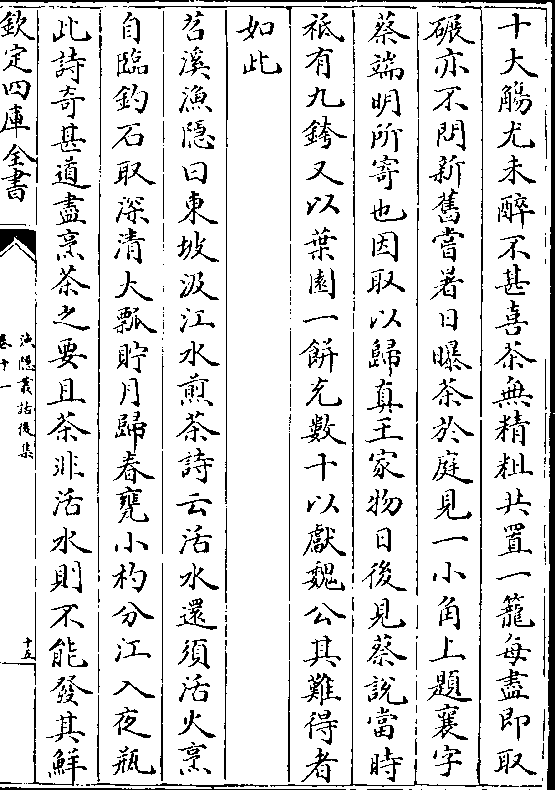 十大觴尤未醉不甚喜茶無精粗共置一籠每盡即取
碾亦不問新舊嘗暑日曝茶於庭見一小角上題襄字
蔡端明所寄也因取以歸真王家物日後見蔡說當時
祗有九銙又以葉園一餅充數十以獻魏公其難得者
如此
苕溪漁隱曰東坡汲江水煎茶詩云活水還須活火烹
自臨釣石取深清大瓢貯月歸春甕小杓分江入夜瓶
此詩奇甚道盡烹茶之要且茶非活水則不能發其鮮
欽定四庫全書
漁隱叢話後集
卷十一
十五